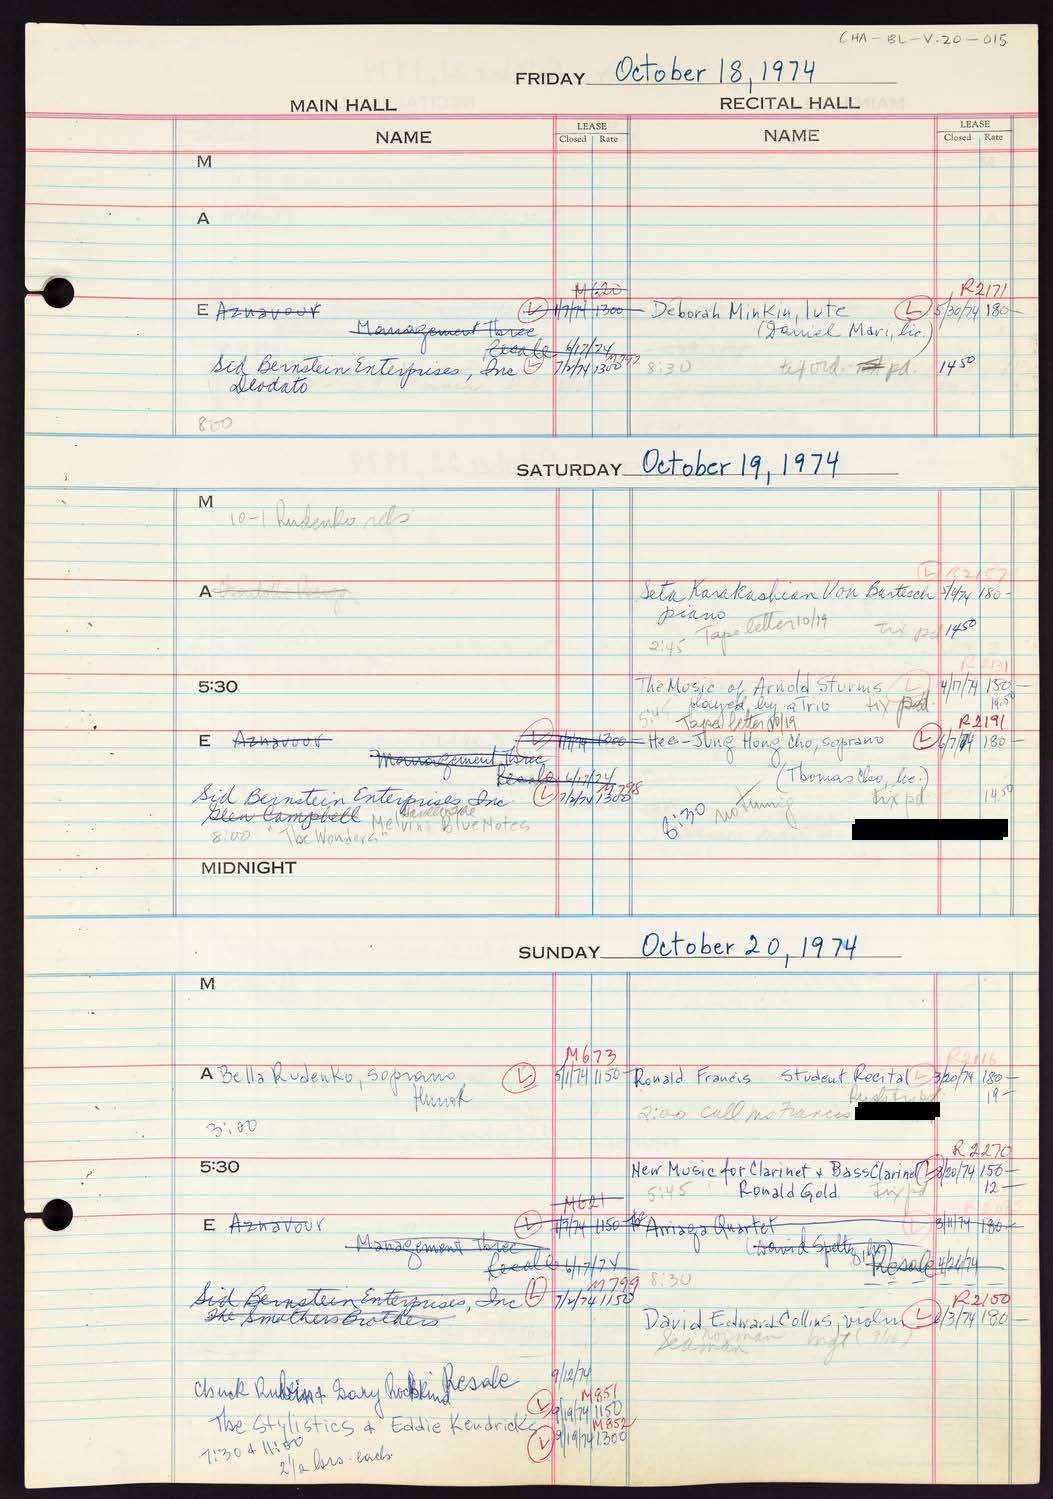 CHA-BL-V.20-015
FRIDAY October 18, 1974
MAIN HALL RECITAL HALL
NAME LEASE Closed Rate NAME LEASE Closed Rate
M
A
M620 R2171
E Aznavour L 1/7/74 1300— Deborah Minkin, lute L 5/30/74 180—
Management Three (Daniel Mari, lic.)
Resale 6/17/74
Sid Bernstein Enterprises, Inc L 7/2/74 1300 M797 8:30 pd. 14 50
Deodato
8:00
SATURDAY October 19, 1974
M
10-1 Rudenko rehs
L R2157
A Seta Karakashian Von Bartesch 5/9/74 180-
piano
2:45 Tape letter 10/19 tix pd 14 50
R2131
5:30 The Music of Arnold Sturms L 4/17/74 150—
5:45 played by a Trio tix pd. 14.50
Tape letter 10/19 R2191
E Aznavour L 1/7/74 1300— Hee-Jung Hong Cho, soprano L 6/7/74 180—
Management Three
Resale 6/17/74 (Thomas Cho, lic.)
Sid Bernstein Enterprises Inc. L 7/2/74 1300 M798 tix pd. 14.50
Glen Campbell Melvin Blue Notes 8:30 no tuning
8:00 "The Wonders"
MIDNIGHT
SUNDAY October 20, 1974
M
M673 R2116
A Bella Rudenko, soprano L 5/1/74 1150— Ronald Francis Student Recital L 3/20/74 180—
Hurok 19—
3:00 2:00 call Mrs Francis
R2270
5:30 New Music for Clarinet + Bass Clarinet L 8/20/74 150—
5:45 Ronald Gold tix pd 12—
M621
E Aznavour L 1/7/74 1150— Arriaga Quartet L 3/11/74 180—
Management Three
Resale 6/17/74 Resale 4/26/74
M799 8:30
Sid Bernstein Enterprises, Inc L 7/2/74 1150 R2150
The Smothers Brothers David Edward Collins, violin L 5/3/74 180—
Seaman mgt
9/12/74
Chuck Rubin & Gary Resale M851
L 9/19/74 1150
The Stylistics & Eddie Kendricks M852
7:30 & 11:00 L 9/19/74 1300
2½ hrs. each